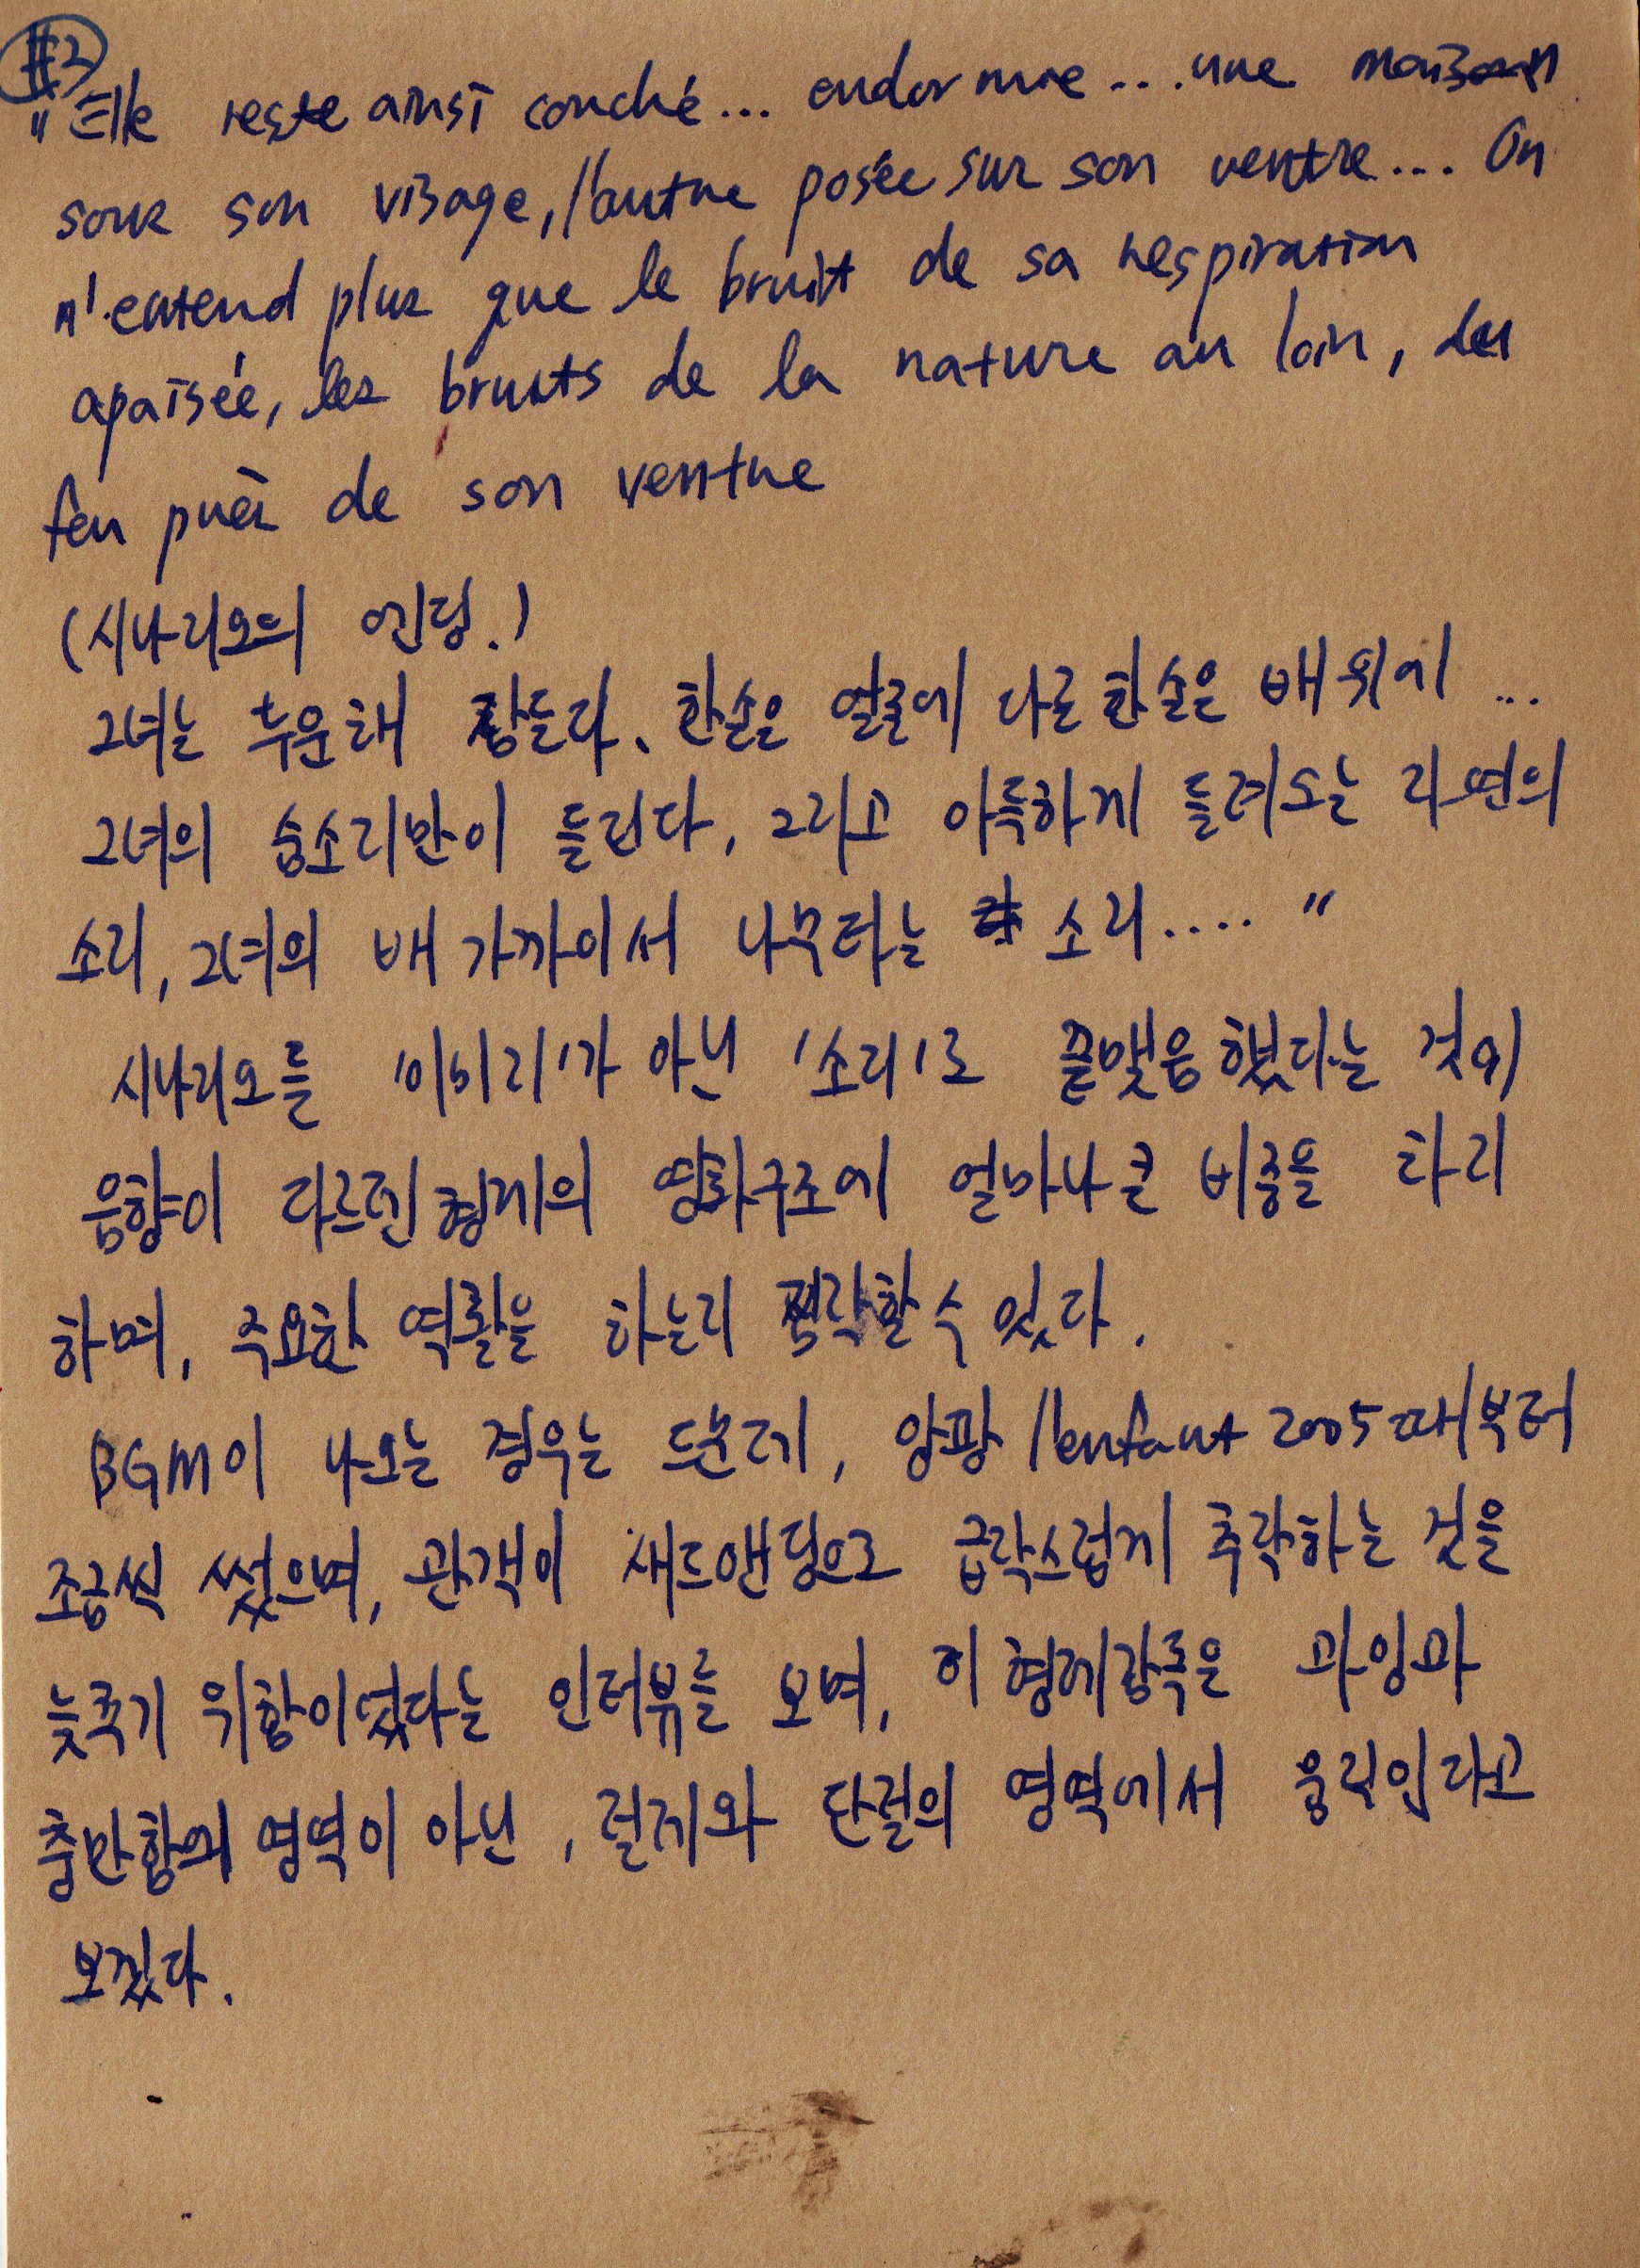 #2
"Elle reste ainsi couché... endormie... une maison
sous son visage, l'autre posée sur son ventre... On
n'entend plus que le bruit de sa respiration
apaisée, les bruits de la nature au loin, du
feu près de son ventre
(시나리오의 엔딩.)
그녀는 누운채 잠든다. 한손은 얼굴에 다른 한손은 배위에 ...
그녀의 숨소리만이 들린다, 그리고 아득하게 들려오는 자연의
소리, 그녀의 배 가까이서 나무타는 소리.... "
시나리오를 '이미지'가 아닌 '소리'로 끝맺음했다는 것이
음향이 다르덴형제의 영화구조에 얼마나 큰 비중을 차지
하며, 주요한 역활을 하는지 짐작할 수 있다.
BGM이 나오는 경우는 드문데, 앙팡 l'enfant 2005때부터
조금씩 썼으며, 관객이 새드앤딩으로 급락스럽게 추락하는 것을
늦추기 위함이었다는 인터뷰를 보며, 이 형제감독은 과잉과
충만함의 영역이 아닌, 절제와 단절의 영역에서 움직인다고
보겠다.